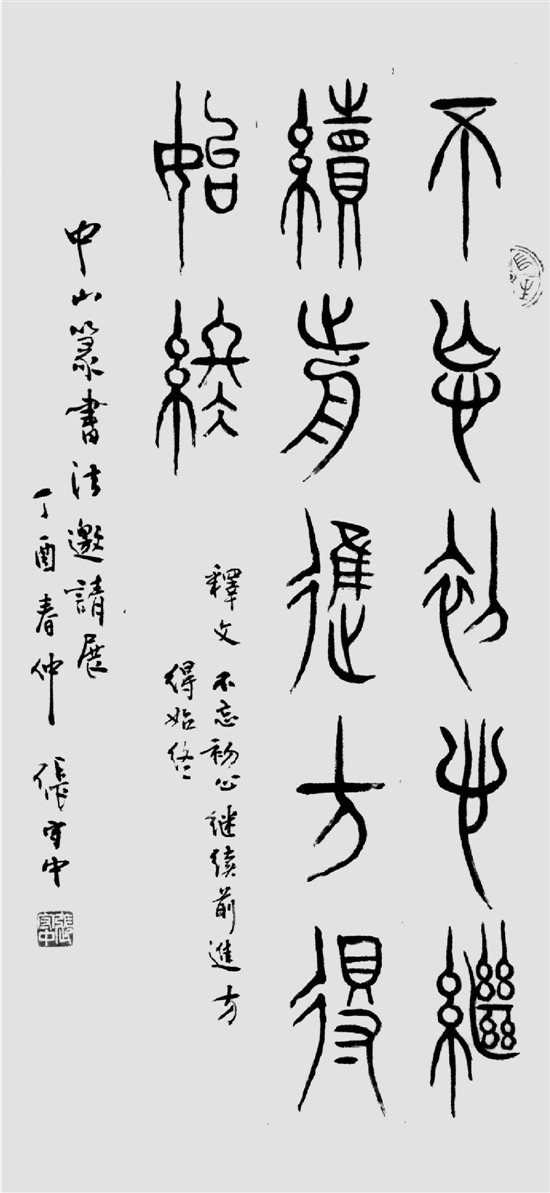 不忘初心继
續前進方得
始終
釋文 不忘初心继续前進方
得始终
中山篆書法邀請展
丁酉春仲 張守中
張守中